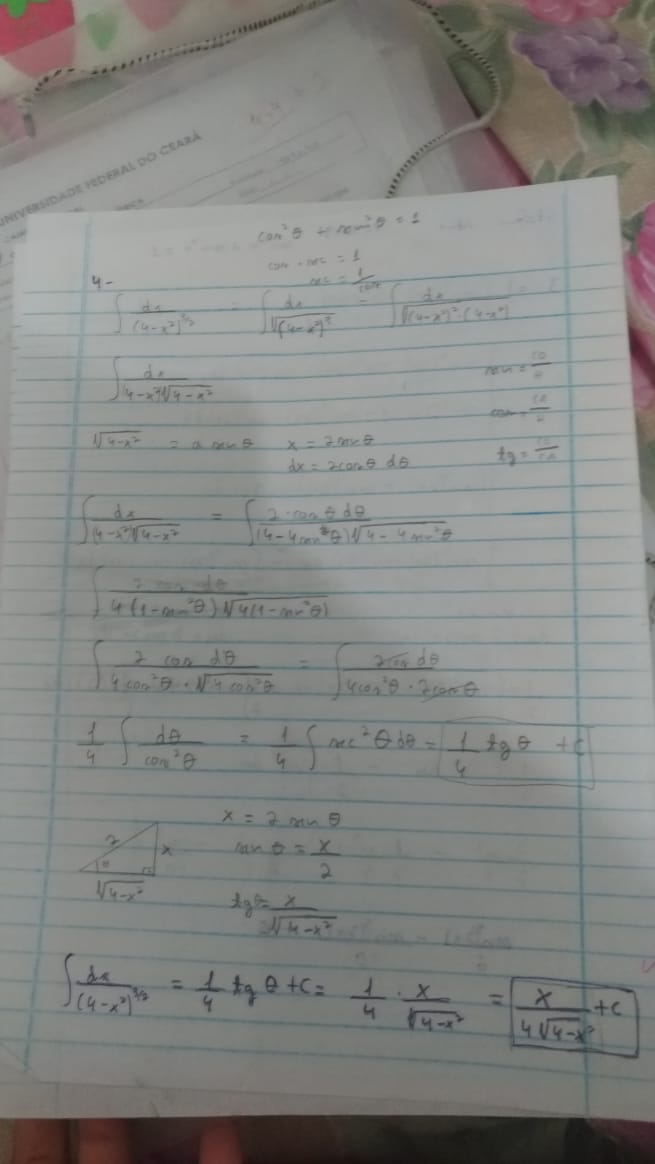 UNIVERSIDADE FEDERAL DO CEARÁ
cos²θ + sen²θ = 1
cos · sec = 1
sec = 1/cos
4-
∫ dx/(4-x²)^3/2 = ∫ dx/√(4-x²)³ = ∫ dx/√(4-x²)²·(4-x²)
∫ dx/4-x²)√4-x² sen = CO/H
cos = CA/H
√4-x² = a sen θ x = 2 sen θ tg = CO/CA
dx = 2 cos θ dθ
∫ dx/(4-x²)√4-x² = ∫ 2·cos θ dθ/(4-4sen²θ)√4-4sen²θ
∫ 2 cos dθ/4(1-sen²θ)√4(1-sen²θ)
∫ 2 cos dθ/4cos²θ·√4cos²θ = ∫ 2cos dθ/4cos²θ·2cosθ
1/4 ∫ dθ/cos²θ = 1/4 ∫ sec²θ dθ = 1/4 tg θ + C
x = 2 sen θ
2 x sen θ = x/2
θ
√4-x² tgθ = x/√4-x²
∫ dx/(4-x²)^3/2 = 1/4 tg θ + C = 1/4 · x/√4-x² = x/4√4-x² + C